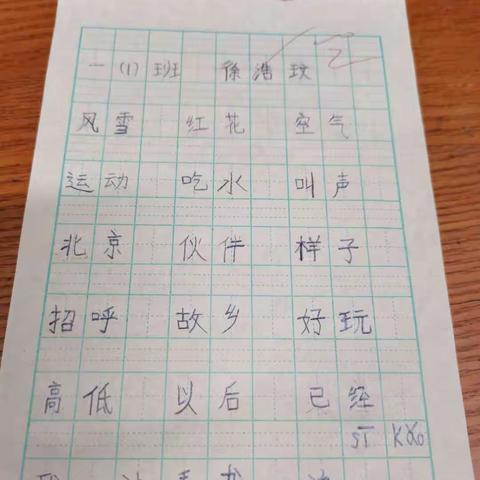 一(1)班 徐浩玟 乙
风雪 红花 空气
运动 吃水 叫声
北京 伙伴 样子
招呼 故乡 好玩
高低 以后 已经